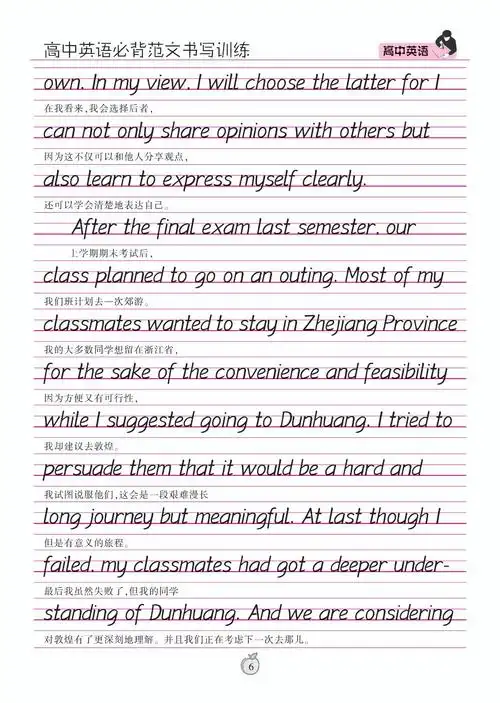 高中英语必背范文书写训练
高中英语
own. In my view, I will choose the latter for I
在我看来,我会选择后者,
can not only share opinions with others but
因为这不仅可以和他人分享观点,
also learn to express myself clearly.
还可以学会清楚地表达自己。
After the final exam last semester, our
上学期期末考试后,
class planned to go on an outing. Most of my
我们班计划去一次郊游。
classmates wanted to stay in Zhejiang Province
我的大多数同学想留在浙江省,
for the sake of the convenience and feasibility
因为方便又有可行性,
while I suggested going to Dunhuang. I tried to
我却建议去敦煌。
persuade them that it would be a hard and
我试图说服他们,这会是一段艰难漫长
long journey but meaningful. At last though I
但是有意义的旅程。
failed, my classmates had got a deeper under-
最后我虽然失败了,但我的同学
standing of Dunhuang. And we are considering
对敦煌有了更深刻地理解。并且我们正在考虑下一次去那儿。
6